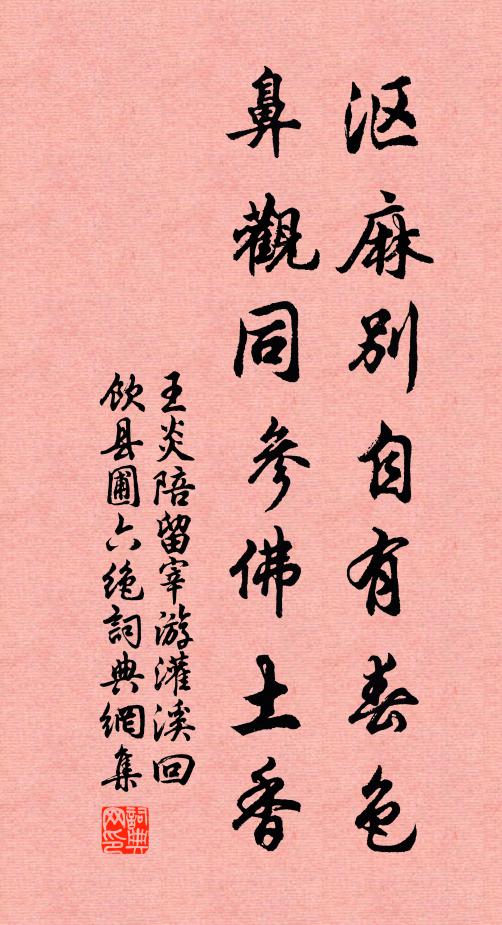 沤麻别自有春色
鼻觀同参佛土香
王炎陪留宰游灌溪回
飲县圃六绝詞典網集
詞典网印